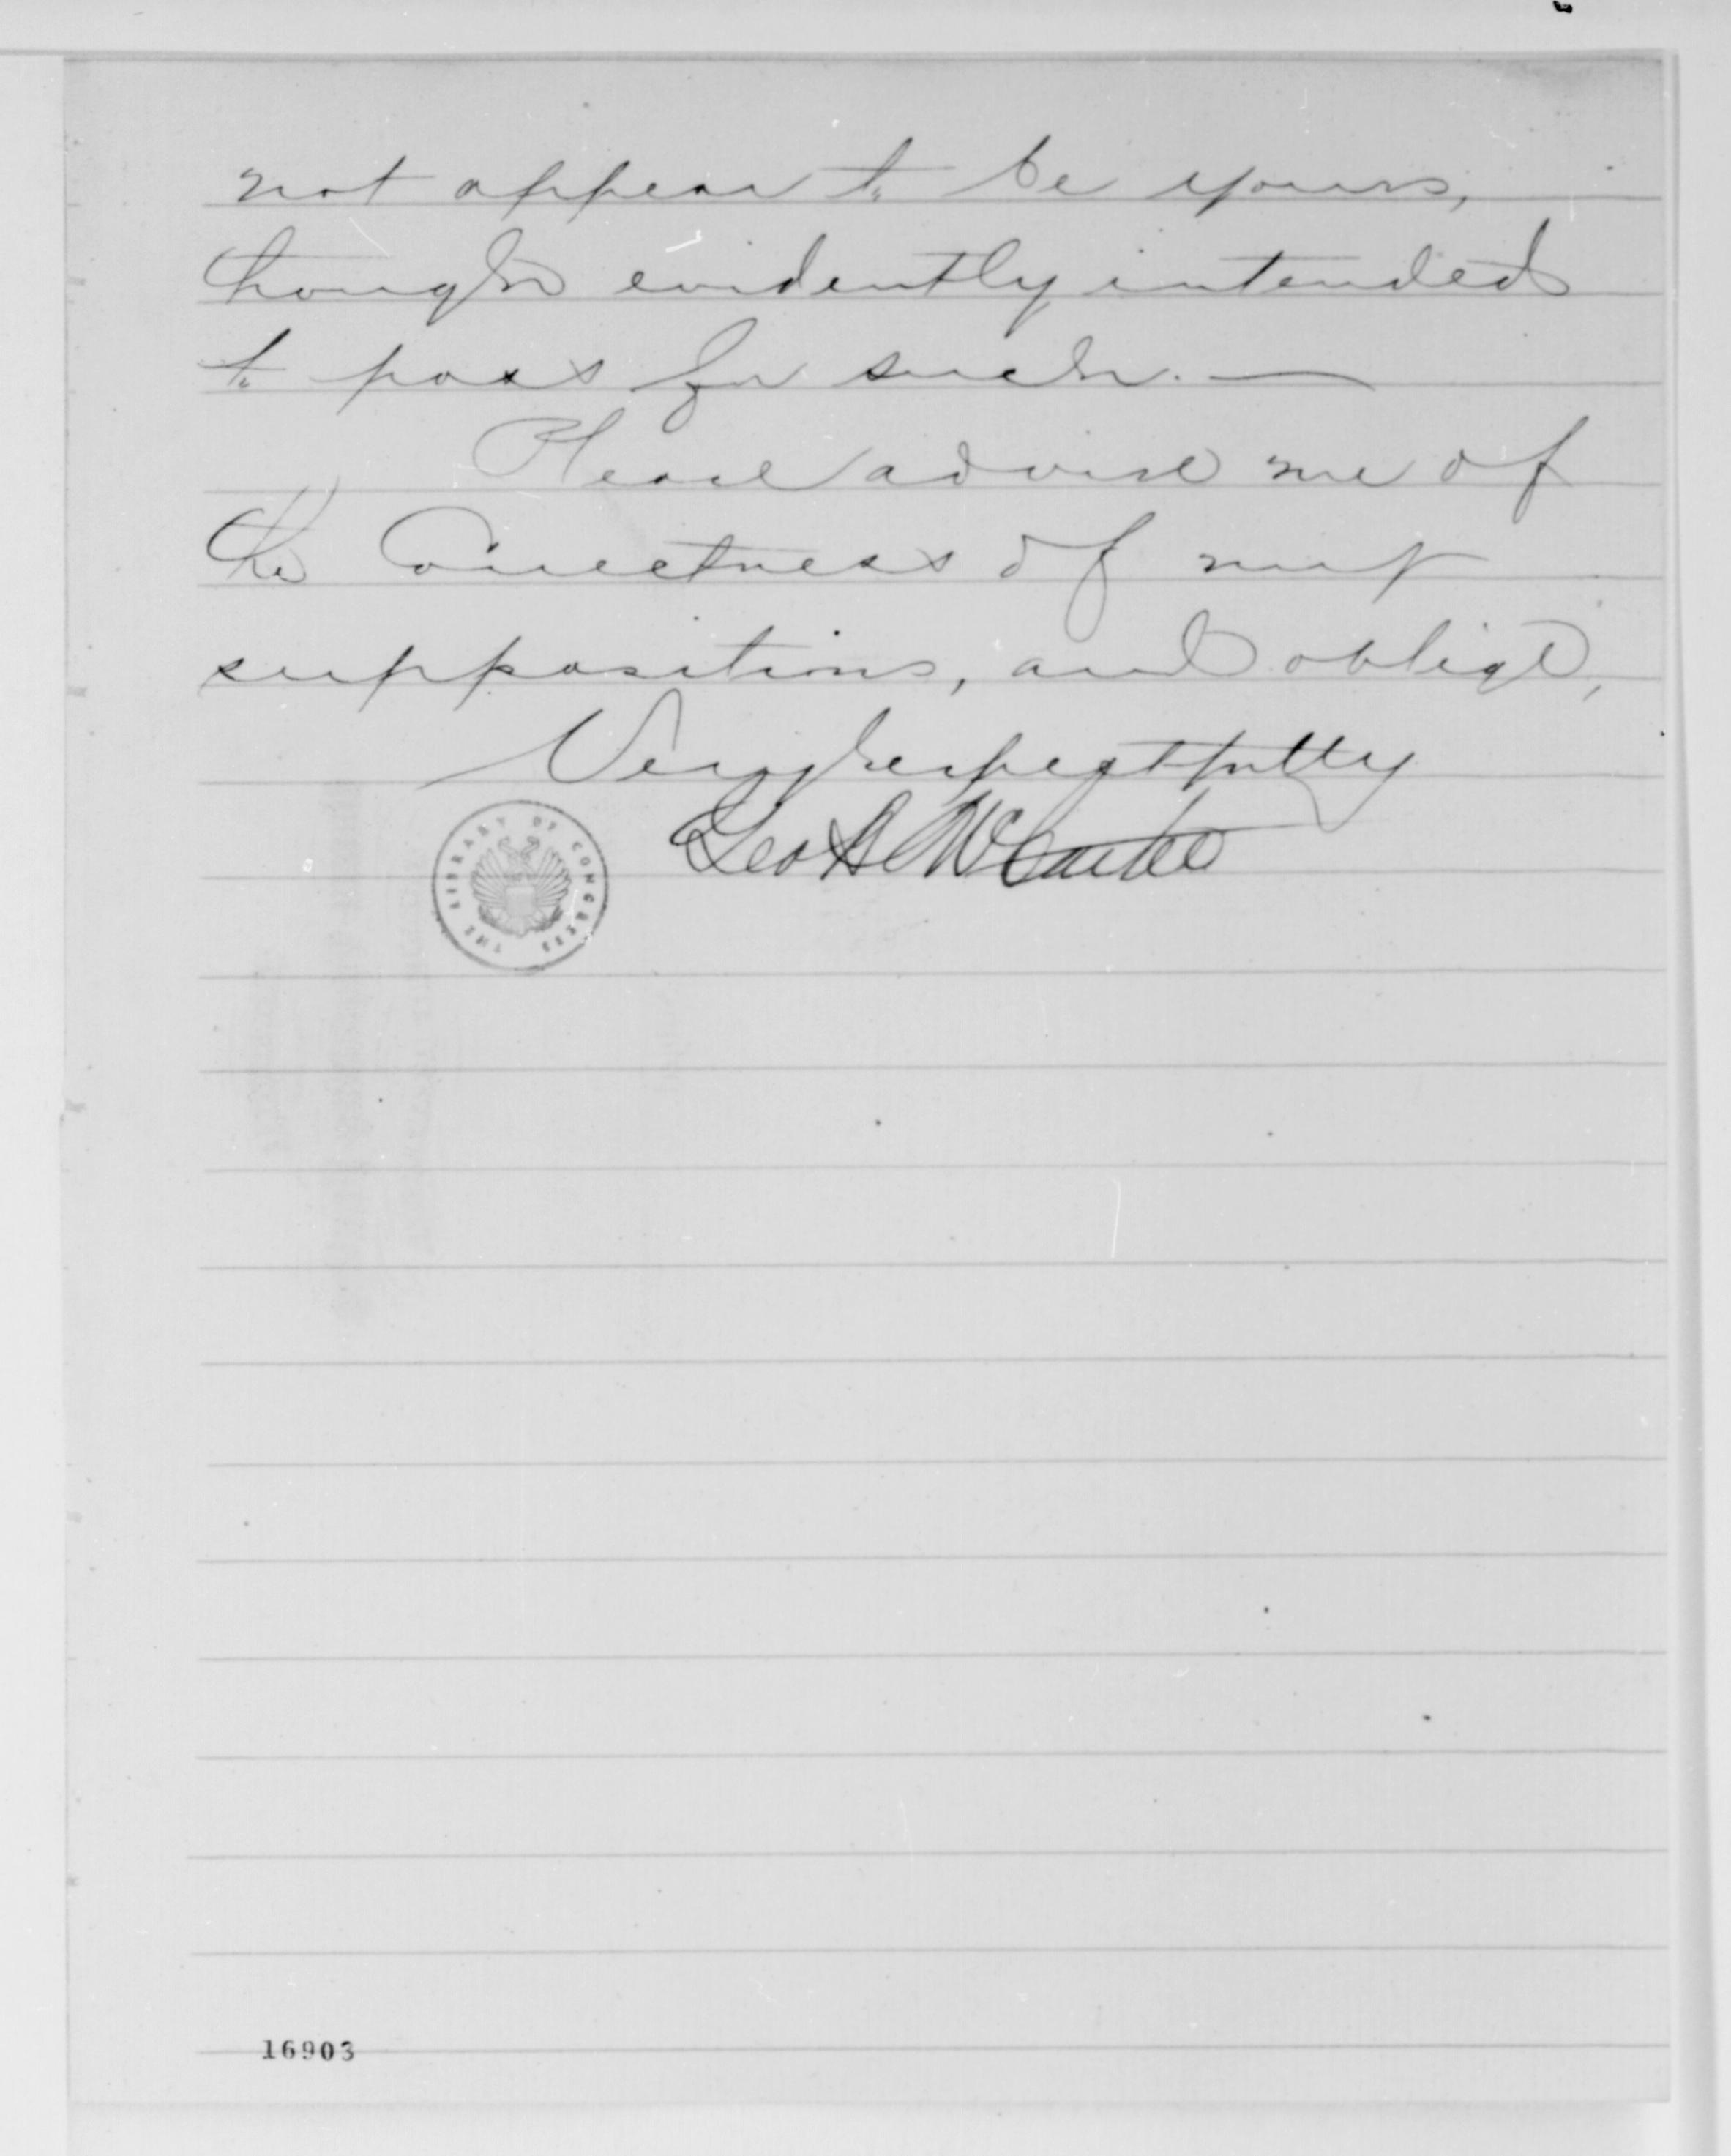 not appear to be yours,
though evidently intended
to pass for such. —
Please advise me of
the correctness of my
suppositions, and oblige,
Very respectfully
Geo
THE LIBRARY OF CONGRESS
16903